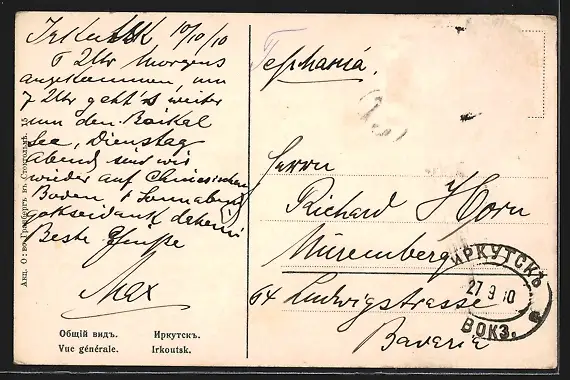 Irkutsk 10/10/10
5 Uhr Morgens
angekommen, um
7 Uhr geht's weiter
um den Baikal
See, Dienstag
Abend sind wir
wieder auf Chinesischen
Boden, & Sonnabend
gottseidank daheim
Beste Grüsse
Max
Общій видъ. Иркутскъ.
Vue générale. Irkoutsk.
Акц. О-во Гранбергъ въ Стокгольмѣ.
Германiя.
Herrn
Richard Horn
Nuremberg
64 Ludwigstrasse
Bavaria
ИРКУТСКЪ
27 9 10
ВОКЗ.